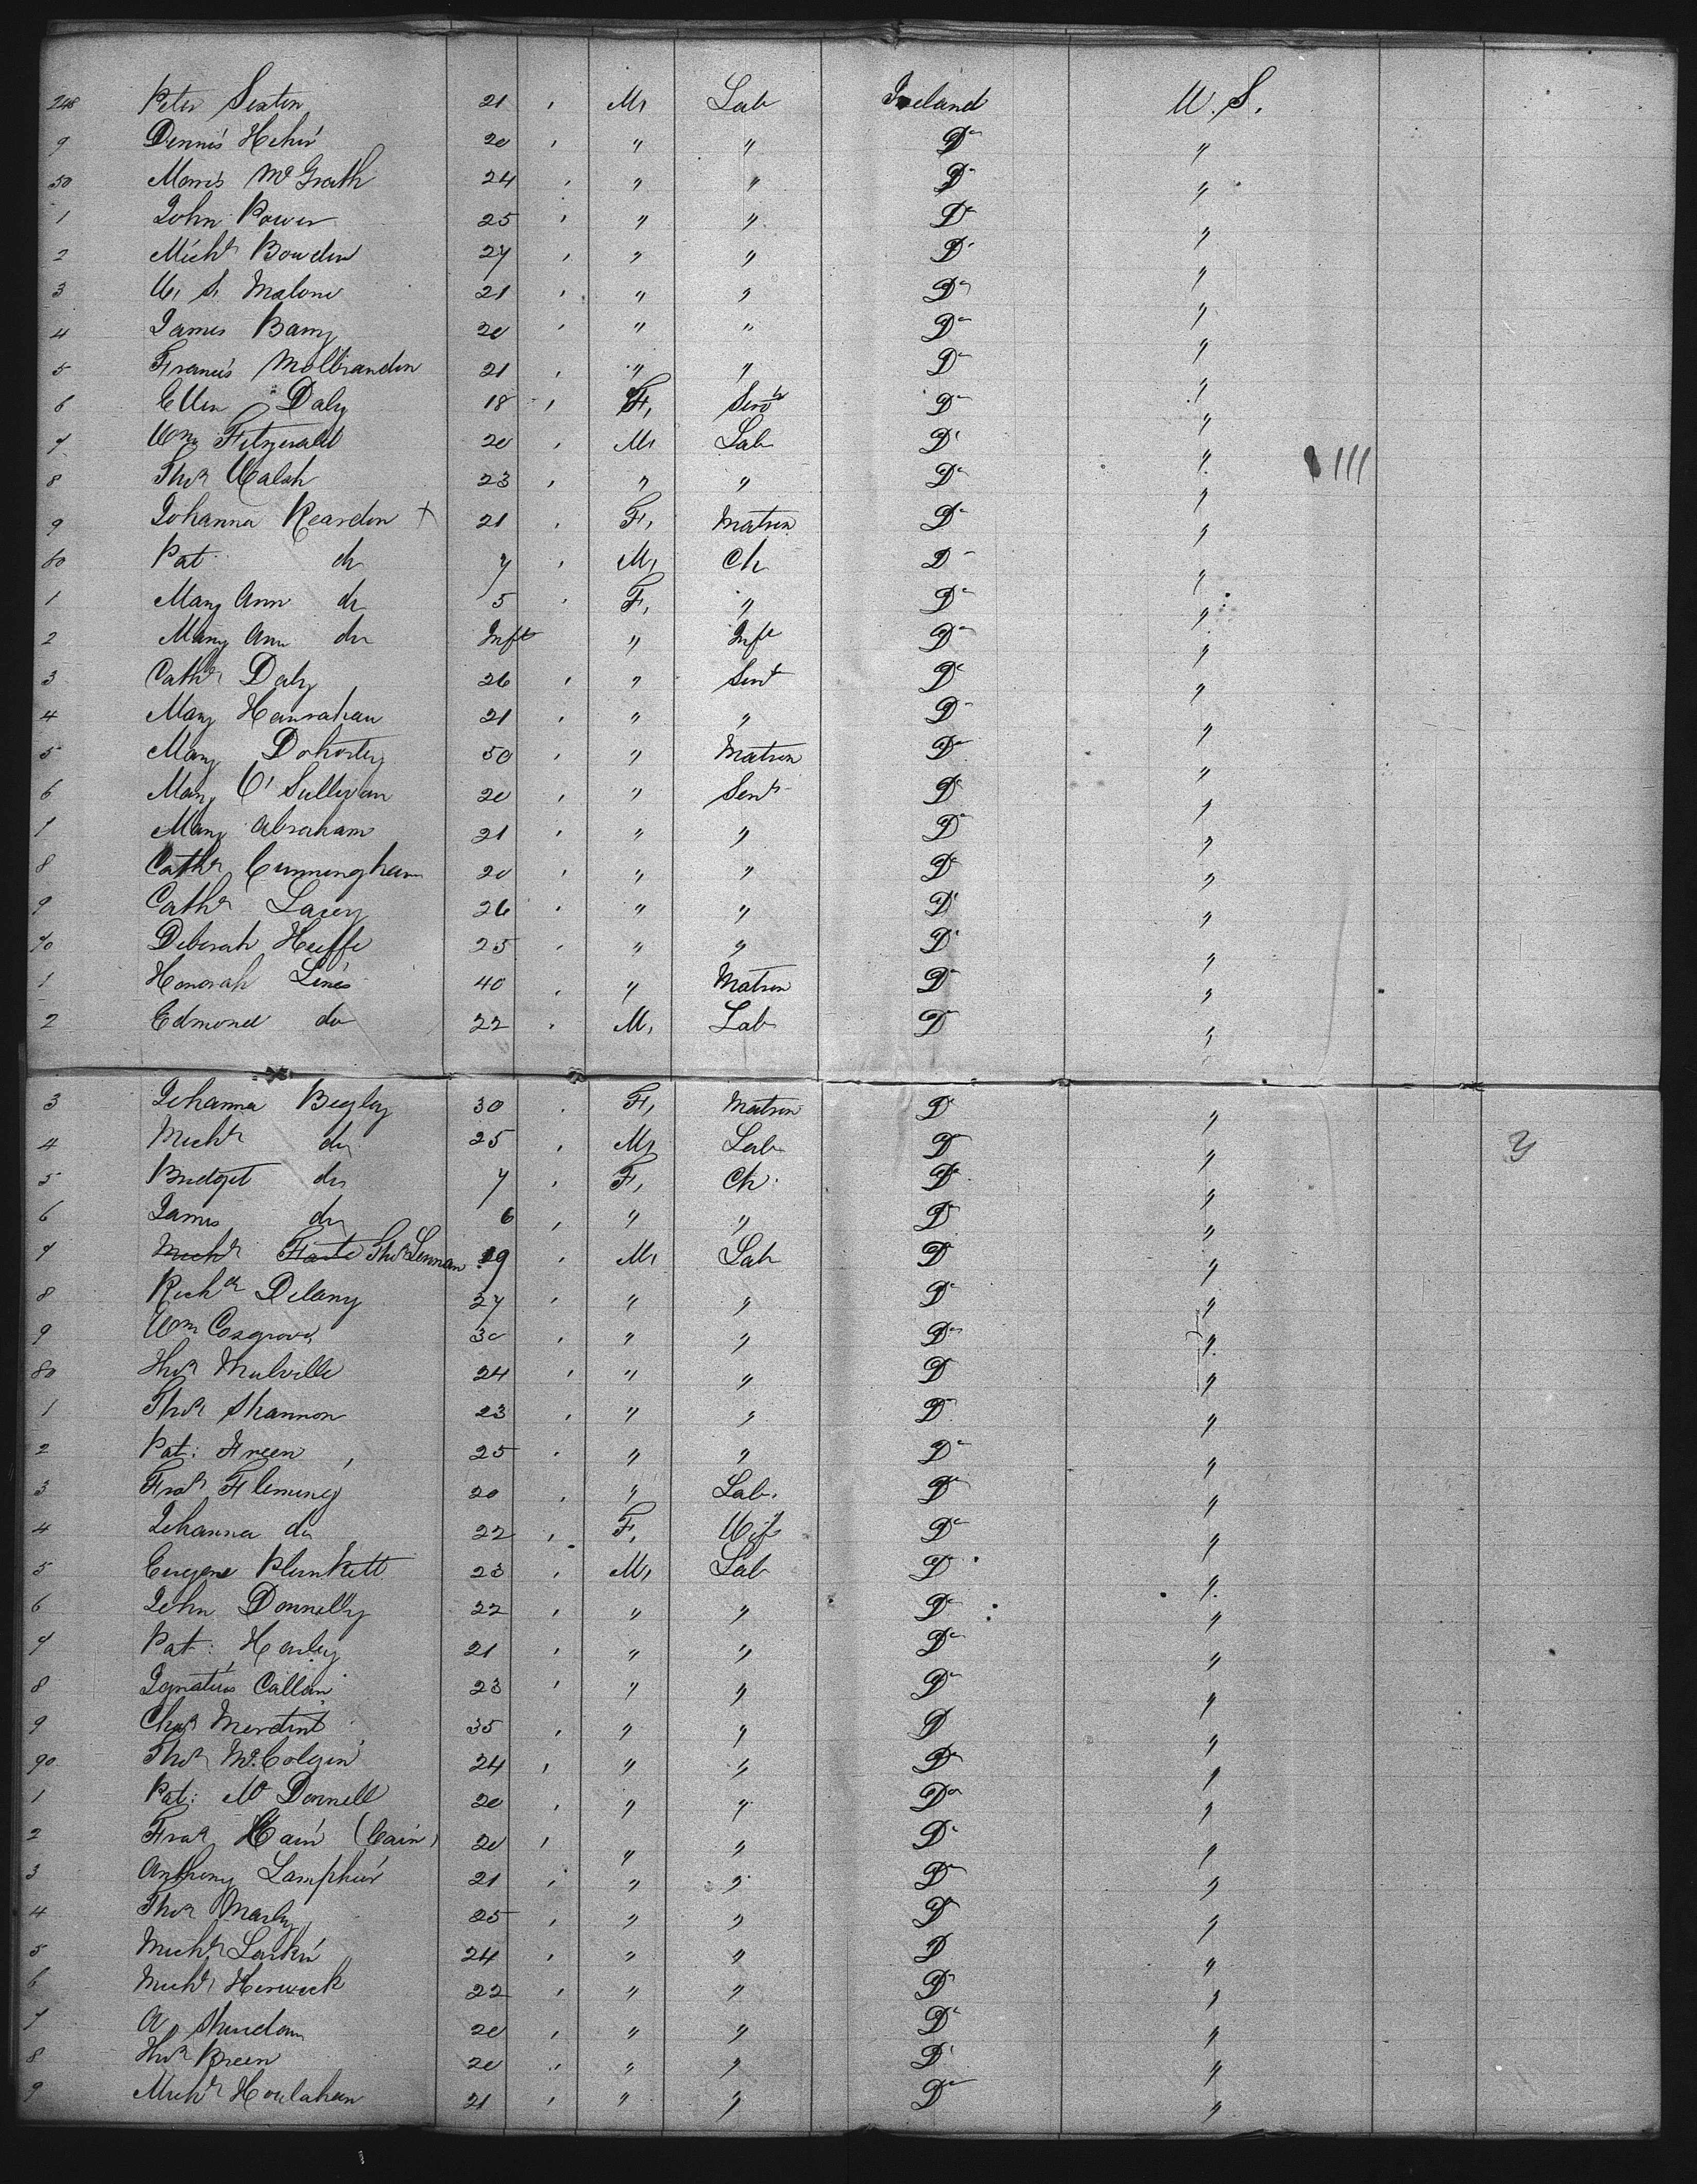 248 Peter Sexton 21 , M, Lab Ireland U. S.
9 Dennis Hehir 20 , " " Do "
50 Morris McGrath 24 , " " Do "
1 John Power 25 , " " Do "
2 Michl Bowden 27 , " " Do "
3 W, S, Malone 21 , " " Do "
4 James Barry 20 , " " Do "
5 Francis 21 , " " Do "
6 Ellen Daly 18 , F, Servt Do "
7 Wm Fitzgerald 20 , M, Lab Do "
8 Thos Walsh 23 , " " Do "
9 Johanna Reardon + 21 , F, Matron Do "
60 Pat: do 7 , M, Ch Do "
1 Mary Ann do 5 , F, " Do "
2 Mary Ann do Inft " Inft Do "
3 Cathr Daly 26 , " Sent Do "
4 Mary Hanrahan 21 , " " Do "
5 Mary Dohorty 50 , " Matron Do "
6 Mary O'Sullivan 20 , " Sent Do "
7 Mary Abraham 21 , " " Do "
8 Cathr Cunningham 20 , " " Do "
9 Cathr Lacey 26 , " " Do "
70 Deborah Keeffe 25 , " " Do "
1 Honorah Lines 40 , " Matron Do "
2 Edmond do 22 , M, Lab Do "
3 Johanna Begley 30 , F, Matron Do "
4 Michl do 25 , M, Lab Do " Y
5 Bridget do 7 , F, Ch Do "
6 James do 6 , " " Do "
7 Michl Thos Lennan 19 , M, Lab Do "
8 Richd Delany 27 , " " Do "
9 Wm Cosgrove 30 , " " Do "
80 Thos Mulville 24 , " " Do "
1 Thos Shannon 23 , " " Do "
2 Pat: Freen 25 , " " Do "
3 Fras Fleming 20 , " Lab. Do "
4 Johanna do 22 , F, Wife Do "
5 Eugene Plunkett 23 , M, Lab Do "
6 John Donnelly 22 , " " Do "
7 Pat: Hanley 21 , " " Do "
8 Ignatius Callan 23 , " " Do "
9 Chas 35 , " " Do "
90 Thos McColgin 24 , " " Do "
1 Pat: McDonnell 20 , " " Do "
2 Fras Kain (Cain) 20 , " " Do "
3 Anthony Lamphier 21 , " " Do "
4 Thos Marly 25 , " " Do "
5 Michl Larkin 24 , " " Do "
6 Michl Herwick 22 , " " Do "
7 A, Sheridan 20 , " " Do "
8 Thos Breen 20 , " " Do "
9 Michl Houlahan 21 , " " Do "